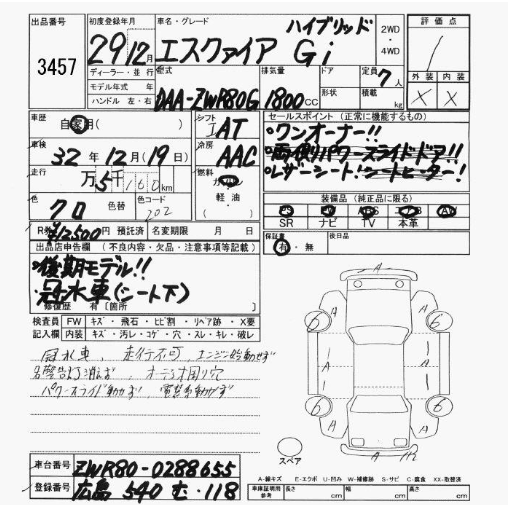 出品番号
3457
初度登録年月
29年12月
ディーラー・並行
モデル年式 年
ハンドル 左・右
車名・グレード
ハイブリッド
エスクァイア Gi
2WD
・
4WD
型式
DAA-ZWR80G
排気量
1800CC
ドア
形状
定員
7人
積載
kg
評価点
/
外装 内装
X X
車歴
自家用( )
車検
32年12月(19日)
走行
万5千100km
色
クロ
色替
色コード
202
シフト
IAT
冷房
AAC
燃料
ガソリン
軽油
( )
セールスポイント (正常に機能するもの)
・ワンオーナー!!
・両側パワースライドドア!!
・レザーシート!シートヒーター!
装備品 (純正品に限る)
PS PW ABS エアB AW
SR ナビ TV 本革
R券 ¥12500 預託済
名変期限 月 日
保証書
有・無
後日品
出品店申告欄 (不良内容・欠品・注意事項等記載)
・後期モデル!!
・冠水車(シート下)
修復歴 有[箇所 ]
検査員 FW キズ・飛石・ヒビ割・リペア跡・X要
記入欄 内装 キズ・汚レ・コゲ・穴・スレ・キレ・破レ
冠水車、走行不可、エンジン始動せず
各警告灯消えず、オーディオ周り穴
パワースライド動かず、電装動かず
A
6 6
A
A A
6 6
A
スペア
A-線キズ E-エクボ U-凹み W-補修跡 S-サビ C-腐食 XX-取替済
車台番号
ZWR80-0288655
登録番号
広島 540 む・118
車庫証明用
参考
長さ cm
幅 cm
高さ cm